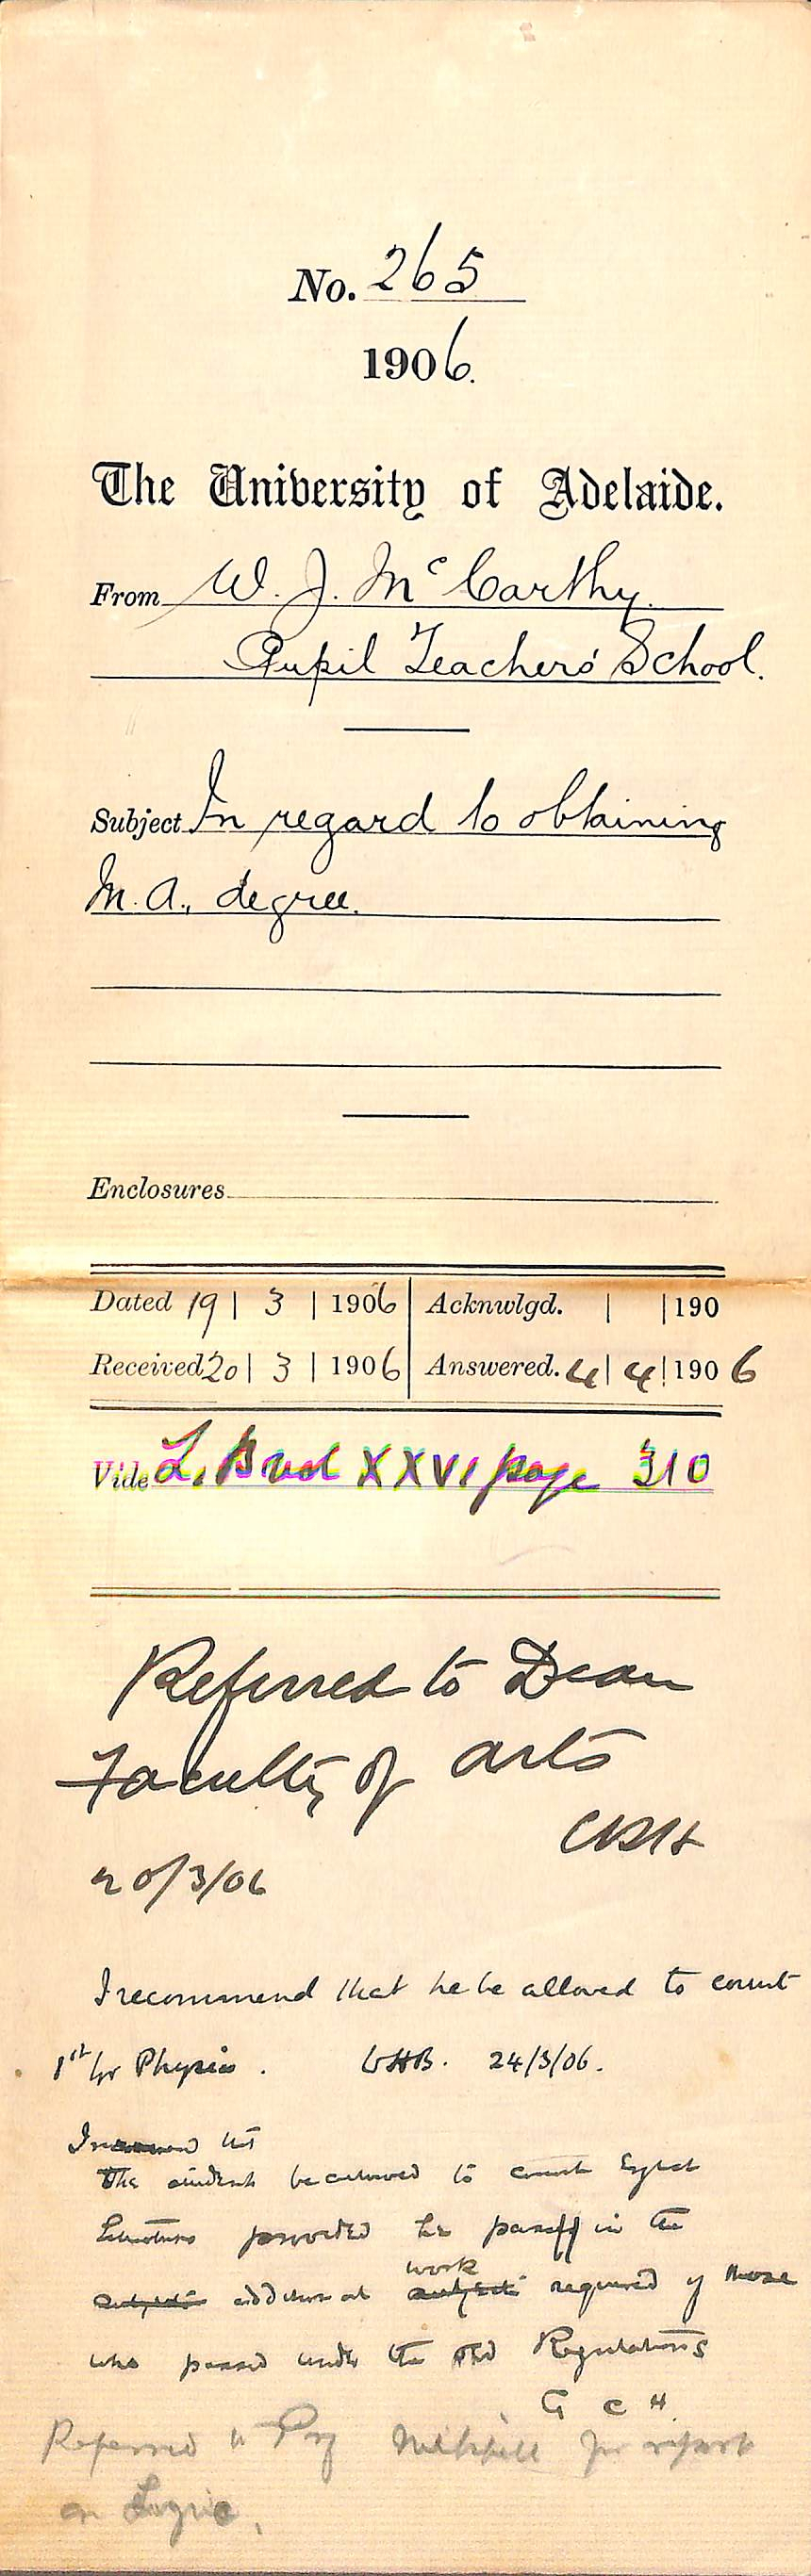 No. 265
1906.
The University of Adelaide.
From W. J. McCarthy.
Pupil Teachers' School.
Subject In regard to obtaining
M.A., degree.
Enclosures
Dated 19 | 3 | 1906 Acknwlgd. | | 190
Received 20 | 3 | 1906 Answered. 4 | 4 | 1906
Vide L. B vol XXVI page 310
Referred to Dean
Faculty of Arts
20/3/06
I recommend that he be allowed to count
1st yr Physics. WHB. 24/3/06.
The student be allowed to count English
Literature provided he passes in the
additional work required of those
who passed under the old Regulations
G C H.
Referred to Prof Mitchell for report
on Logic.